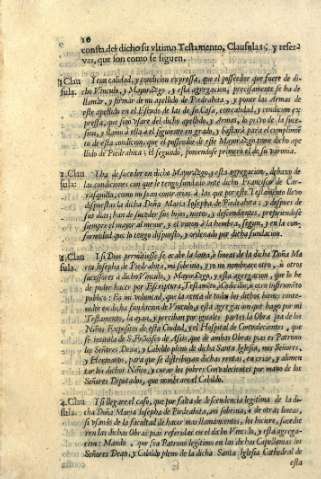 10
consta del dicho su ultimo Testamento, Clausulas, y reservas, que son como se siguen.
1. Clausula. Y con calidad, y condicion expressa, que el posseedor que fuere de dicho Vinculo, y Mayorazgo, y esta agregacion, precisamente se ha de
llamar, y firmar de mi apellido de Piedrahita, y poner las Armas de
este apellido en el Escudo de las de su Casa, con calidad, y condicion expressa, que sino usare del dicho apellido, y Armas, lo privo de la succession, y llamo à ella al siguiente en grado, y bastarà para el cumplimiento de esta condicion, que el posseedor de este Mayorazgo ponga dicho apellido de Piedrahita, el segundo, poniendose primero el de su varonia.
2. Clausula. Ha de suceder en dicho Mayorazgo, y esta agregacion, debaxo de
las condiciones con que lo tengo fundado
este dicho Francisco de Carrasquilla, como no sean contrarias à las que por este Testamento llevo
dispuestas la dicha Doña Maria Iosepha de Piedrahita; y despues de
sus dias, han de suceder sus hijos, nietos, y descendientes, prefiriendose
siempre el mayor al menor, y el varon à la hembra, segun, y en la conformidad que lo tengo dispuesto, y ordenado por dicha fundacion.
3. Clausula. Y si Dios permitiesse se acabe la
linea de la dicha Doña Maria Iosepha de Piedrahita, mi sobrina,
otros
successores à dicho Vinculo, y Mayorazgo, y esta agregacion, que lo he
de poder hazer por Escriptura, Testamento, Codicilo, ù otro instrumento
publico: Es mi voluntad, que la renta de todos los dichos bienes contenidos en dicha fundacion de Vinculo, y esta agregacion que hago por mi
Testamento, la ayan, y perciban por iguales partes la Obra pia de los
Niños Expositos de esta Ciudad, y el Hospital de Convalecientes, que
que de ambas Obras pias es Patrono
los Señores Dean, y Cabildo pleno de dicha Santa Iglesia, mis Señores,
y Hermanos, para que se distribuyan dichas rentas, en criar, y alimentar los dichos Niños, y curar los pobres Convalecientes por mano de los
Señores Diputados, que nombrare el Cabildo.
4. Clausula. Y si llegare el caso, que por falta de descendencia legitima de la dicha Doña Maria Iosepha de Piedrahita, mi sobrina, ò de otras lineas,
si usando de la facultad de hazer mas llamamientos, los hiciere, sucedieren las dichas Obras pias referidas en el dicho Vinculo, y esta agregacion: Mando, que sea Patrono legitimo en las dichas Capellanias los
Señores Dean, y Cabildo pleno de la dicha Santa Iglesia Cathedral de
esta